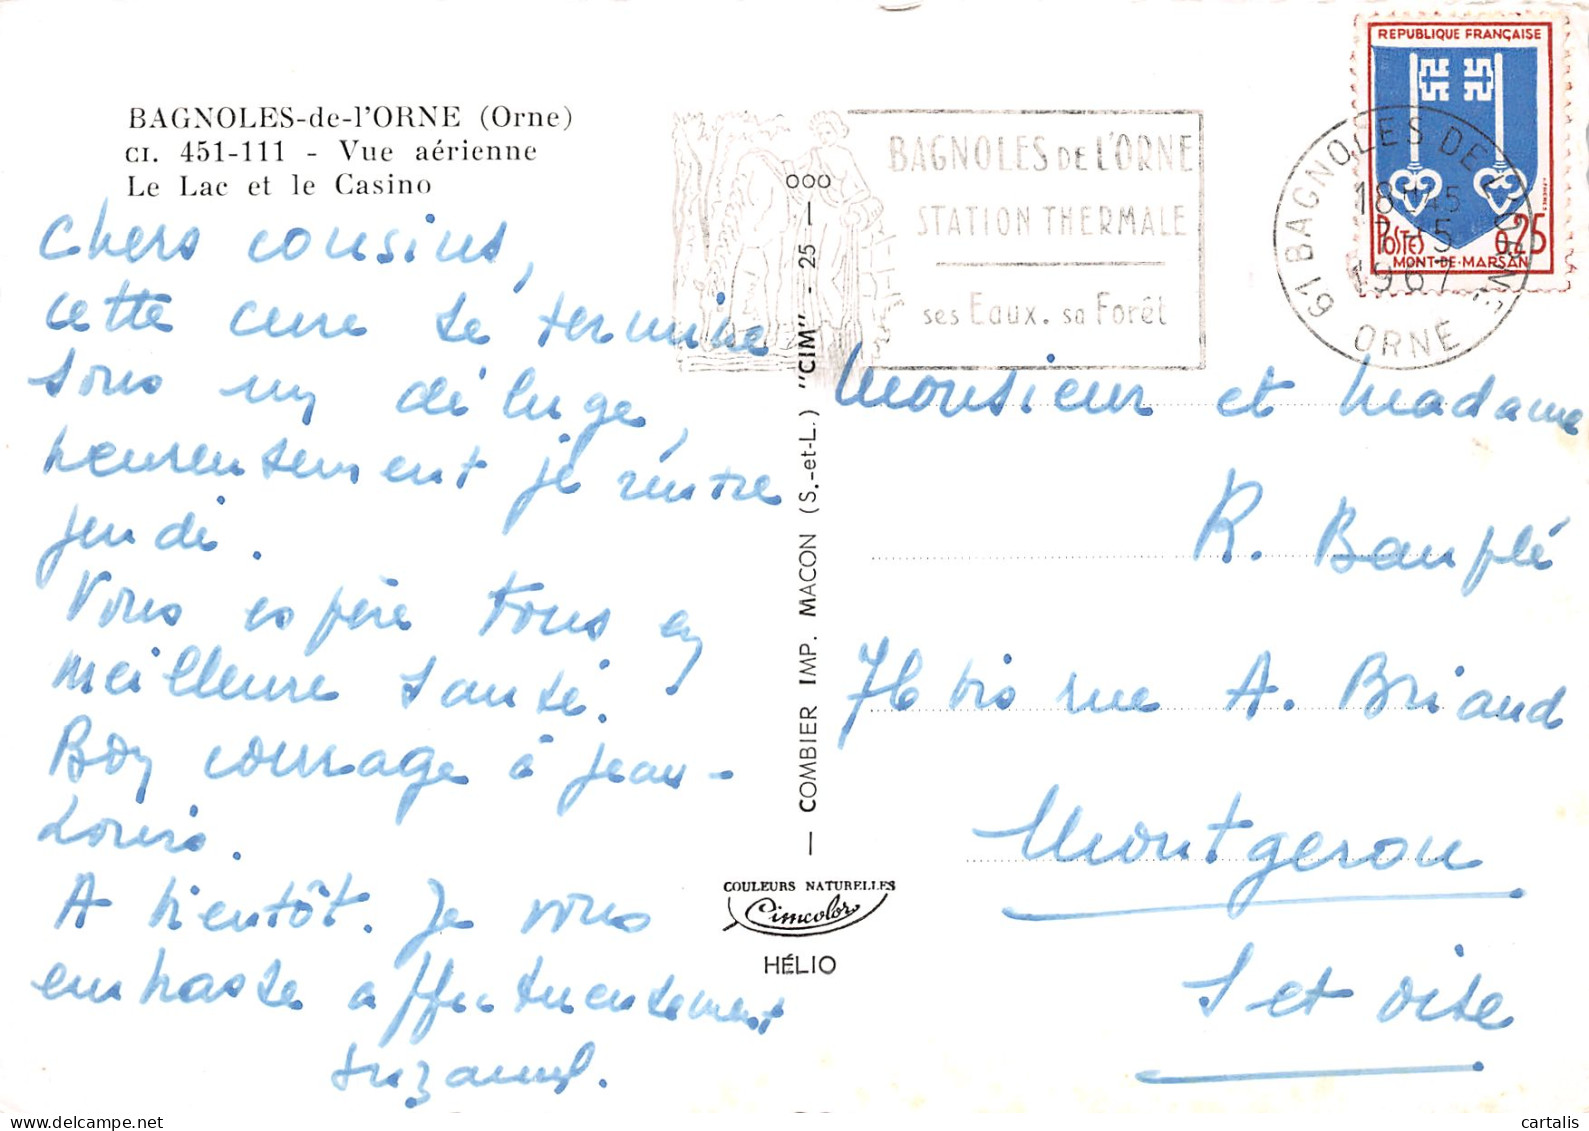 BAGNOLES-de-l'ORNE (Orne)
CI. 451-111 - Vue aérienne
Le Lac et le Casino
Chers cousins,
cette cure se termine
sous un déluge,
heureusement je rentre
jeudi.
Vous espère tous en
meilleure santé.
Bon courage à Jean-
Louis.
A bientôt. Je vous
embrasse affectueusement
Suzanne.
COMBIER IMP. MACON (S.-et-L.) "CIM" - 25 -
000
COULEURS NATURELLES
Cimcolor
HÉLIO
BAGNOLES DE L'ORNE
STATION THERMALE
ses Eaux. sa Forêt
REPUBLIQUE FRANÇAISE
POSTES 0,25
MONT-DE-MARSAN
61 BAGNOLES DE L'ORNE
18H45
-5
1967
ORNE
Monsieur et Madame
R. Bauplé
76 bis rue A. Briand
Montgeron
S et Oise
cartalis